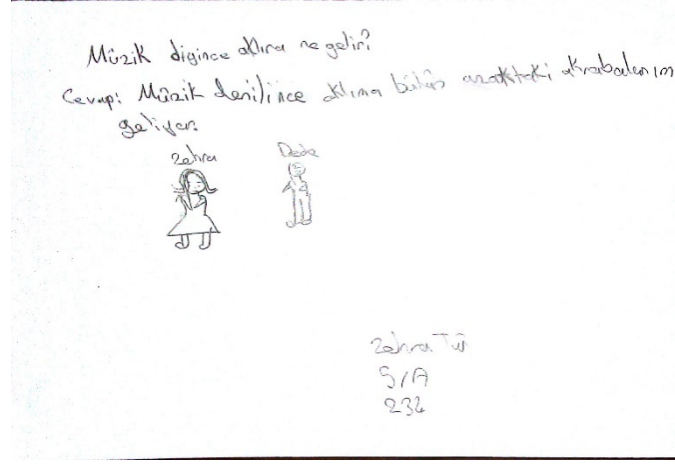 Müzik digince aklına ne gelir?
Cevap: Müzik denilince aklıma bütün uzaktaki akrabalarım
geliyor.
Zehra Dede
Zehra
5/A
232